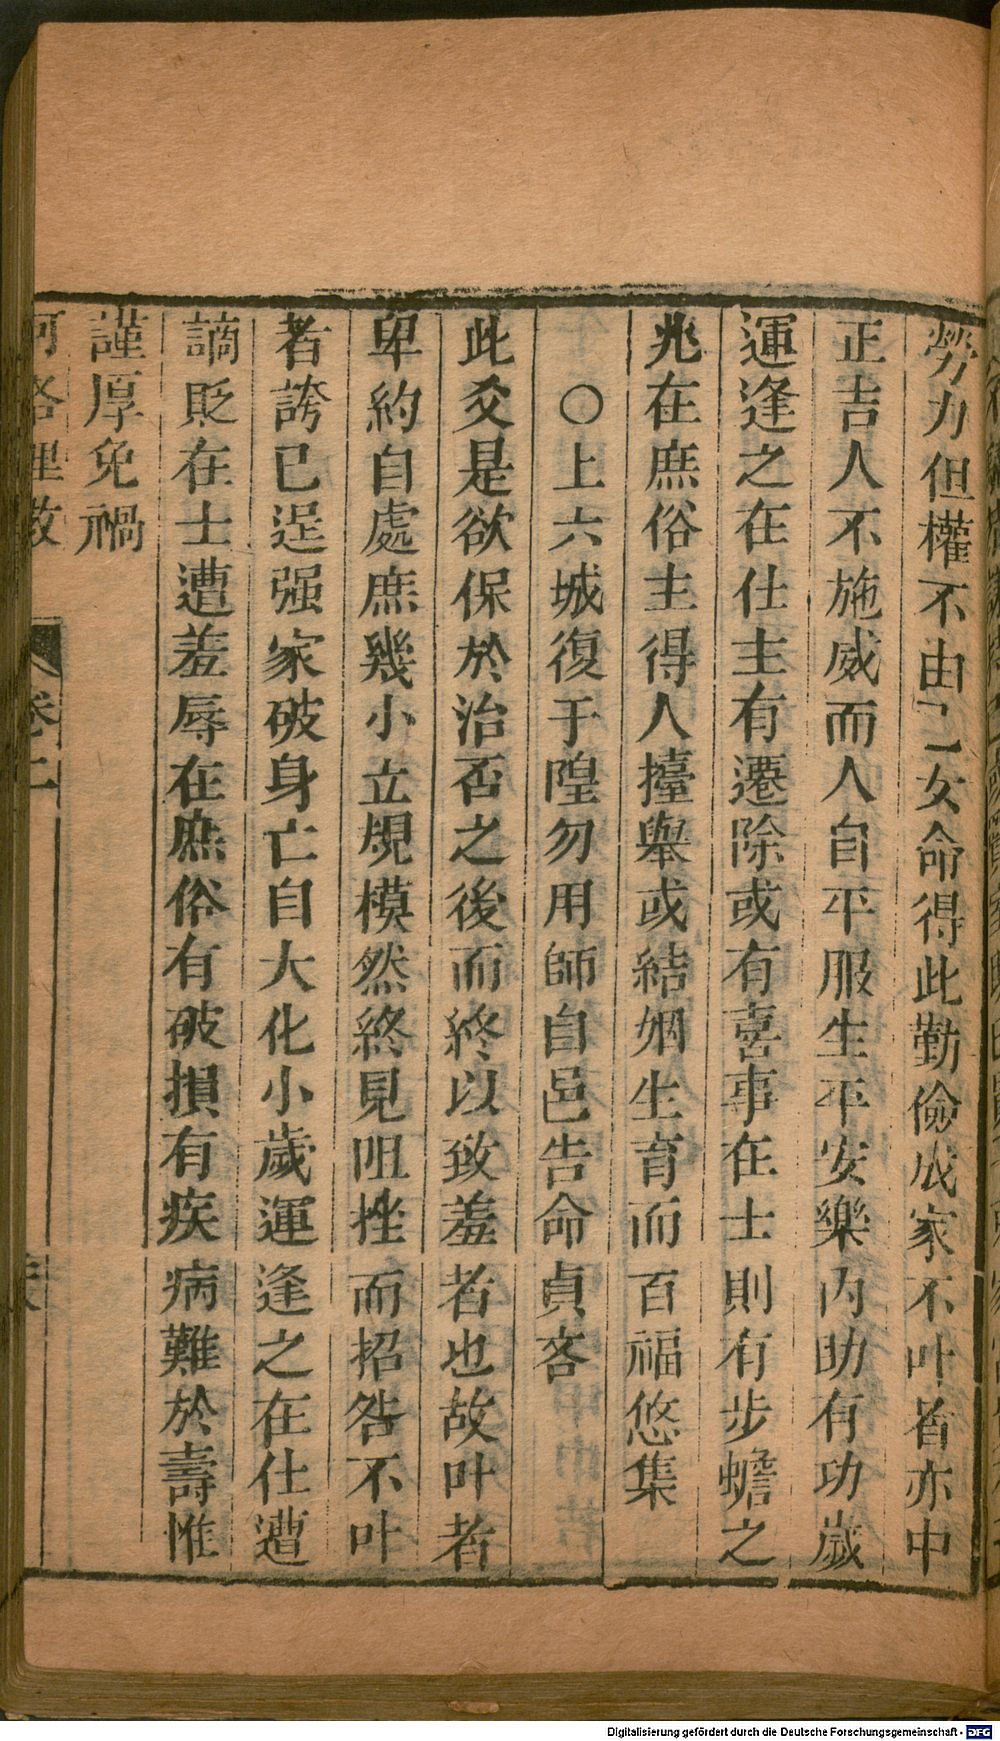 勞力但權不由己女命得此勤儉成家不叶者亦中
正吉人不施威而人自平服生平安樂內助有功歲
運逢之在仕主有遷除或有喜事在士則有步蟾之
兆在庶俗主得人擡舉或結姻生育而百福悠集
○上六城復于隍勿用師自邑告命貞吝
此爻是欲保於治否之後而終以致羞者也故叶者
卑約自處庶幾小立規模然終見咀挫而招咎不叶
者誇已逞强家破身亡自大化小歲運逢之在仕遭
謫貶在士遭羞辱在庶俗有破損有疾病難於壽惟
謹厚免禍
河洛理数
卷二
Digitalisierung gefördert durch die Deutsche Forschungsgemeinschaft - DFG